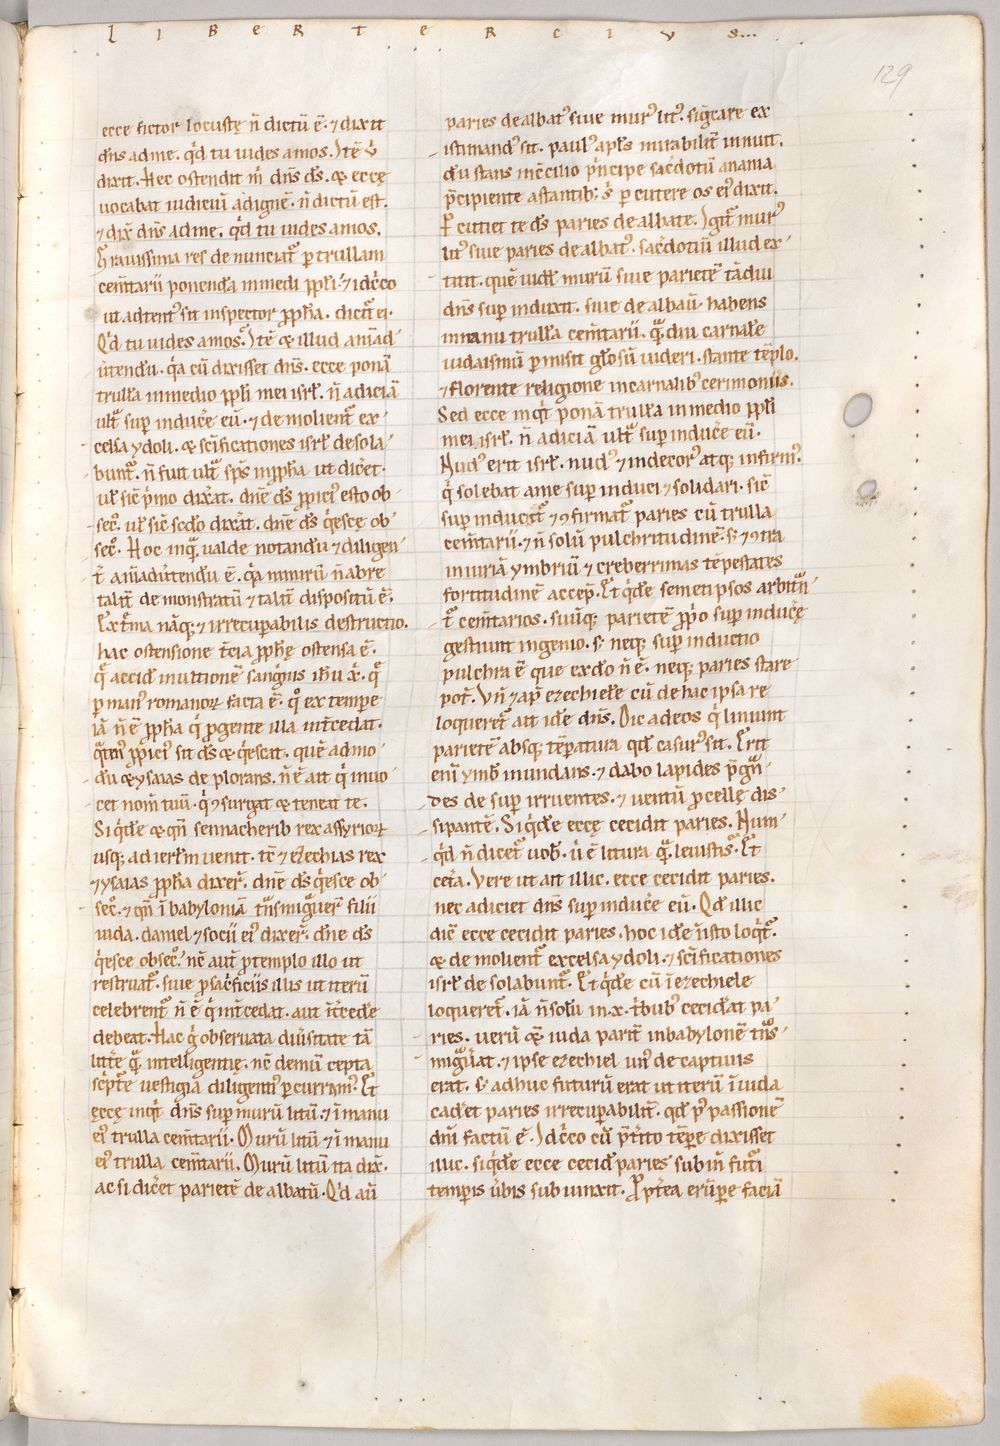 LIBER TERCIVS...
129
ecce fictor locustę n̄ dictū ē. ⁊ dixit
dn̄s ad me. qͥd tu uides amos. Itē
dixit. Hec ostendit m̄ dn̄s ds̄. & ecce
uocabat iudiciū ad ignē. n̄ dictū est.
⁊ dix̄ dn̄s ad me. qͥd tu uides amos.
Grauissima res denunciat᷑ ꝑ trullam
cem̄tarii ponendā in medi pp̄li. ⁊ idcͥco
ut adtent᷒ sit inspector ꝓph̄a. dict᷑ ei.
Qͥd tu uides amos. Itē & illud aīad
uͥtendū. qͥa cū dixisset dn̄s. ecce ponā
trullā in medio pp̄li mei isrl̄. n̄ adiciā
ult᷑ suꝑinduc̄e eū. ⁊ demolient᷑ ex
celsa ydoli. & sc̄ificationes isrl̄ desola
bunt᷑. n̄ fuit ult᷑ sp̄s in ꝓph̄a ut dic̄et.
ul̄ sic̄ pͥmo dix̄at. dn̄e ds̄ ꝓpici᷒ esto ob
sec̄. ul̄ sic̄ scd̄o dix̄at. dn̄e ds̄ qͥesce ob
sec̄. Hoc inqͣ ualde notandū ⁊ diligen
t̄ aīaduͥtendū ē. qͥa nimirū n̄ ab re
talit̄ demonstratū ⁊ talit̄ dispositū ē.
Ext̄ma nāq; ⁊ irrecuꝑabilis destructio.
hac ostensione t̄cia ꝓph̄ę ostensa ē.
qͣ accid̄ in ultionē sangͥnis ih̄u x̄. qͣ
ꝑ man᷒ romanoꝝ facta ē. qͦ ex tempe
iā n̄ ē ꝓph̄a qͥ ꝓ gente illa int̄cedat.
qͣten᷒ ꝓpici᷒ sit ds̄ & qͥescat. quē admo
dū & ysaias deplorans. n̄ ē ait qͥ inuo
cet nom̄ tuū. qͥ ꝯsurgat & teneat te.
Siqͥdē & qn̄ sennacherib rex assyrioꝝ
usq; ad ierl̄m uenit. tc̄ ⁊ ezechias rex
⁊ ysaias ꝓph̄a dixer̄. dn̄e ds̄ qͥesce ob
sec̄. ⁊ qn̄ ī babyloniā tͣnsmigͣuer̄ filii
iuda. daniel ⁊ socii ei᷒ dixer̄. dn̄e ds̄
qͥesce obsec̄. nc̄ aut̄ ꝓ templo illo ut
restruat᷑. siue ꝓ sacͥficiis illis ut iterū
celebrent᷑ n̄ ē qͥ int̄cedat. aut īt̄cede
debeat. Hac gͦ obseruata diuͥsitate tā
litt̄e qͣ intelligentię. nc̄ demū cepta
sc̄pt̄e uestigia diligenti᷒ ꝑcurram᷒. Et
ęcce inqͥt dn̄s suꝑ murū litū. ⁊ ī manu
ei᷒ trulla cem̄tarii. Murū litū ⁊ ī manu
ei᷒ trulla cem̄tarii. Murū litū ita dix̄.
ac si dic̄et parietē dealbatū. Qͥd aū
paries dealbat᷒ siue mur᷒ lit᷒. signi͂care ex
istimand᷒ sit. paul᷒ apl̄s mirabilit̄ innuit.
dū stans in cc̄ilio pͥncipe sac̄dotū anania
p̄cipiente astantib; s̄ ꝑcutere os ei᷒ dixit.
Ꝑcutiet te ds̄ paries dealbate. Igit᷑ mur᷒
lit᷒ siue paries dealbat᷒. sac̄dotiū illud ex
titit. quē uidl̄ murū siue parietē tādiu
dn̄s suꝑinduxit. siue dealbauͥ. habens
in manu trullā cem̄tarii. qͣdiu carnale
iudaismū ꝑmisit gl̄osū uideri. stante tēplo.
⁊ florente religione in carnalib᷒ cerimoniis.
Sed ecce inqͥt ponā trullā in medio pp̄li
mei isrl̄. n̄ adiciā ult᷑ suꝑinduc̄e eū.
Nud᷒ erit isrl̄. nud᷒ ⁊ indecor᷒ atq; infirm᷒.
qͥ solebat a me suꝑindui ⁊ solidari. sic̄
suꝑinducit᷑ ⁊ ꝯfirmat᷑ paries cū trulla
cem̄tarii. ⁊ n̄ solū pulchritudinē. s; ⁊ ꝯtra
iniuriā ymbriū ⁊ creberrimas tēpestates
fortitudinē accep̄. Et qͥdē semetipsos arbitͣn
t᷑ cem̄tarios. suūq; parietē ꝓpͥo suꝑinduc̄ę
gestiunt ingenio. s; neq; suꝑinductio
pulchra ē que ex do n̄ ē. neq; paries stare
pot̄. Vn̄ ⁊ ap̄ ezechiele cū de hac ipsa re
loqueret᷑ ait idē dn̄s. Dic ad eos qͥ liniunt
parietē absq; tēꝑatura qd̄ casur᷒ sit. Erit
enī ymb̄ inundans. ⁊ dabo lapides p̄gͣn
des desuꝑ irruentes. ⁊ uentū ꝓcellę dis
sipantē. Siqͥdē ecce cecidit paries. Nun
qͥd n̄ dicet᷑ uob̄. uͥ ē litura qͣ leuistis. Et
cet̄a. Vere ut ait illic. ecce cecidit paries.
nec adiciet dn̄s suꝑinduc̄e eū. Qd̄ illic
dic̄ ecce cecidit paries. hoc idē n̄ isto loqͥt᷑.
& demolient᷑ excelsa ydoli. ⁊ sc̄ificationes
isrl̄ desolabunt᷑. Et qͥdē cū ī ezechiele
loqueret᷑. iā n̄ solū in .x. tͥbub᷒ cecid̄at pa
ries. uerū & iuda parit̄ in babylonē tͣns
migͣu̇at. ⁊ ipse ezechiel un᷒ de captiuis
erat. s; adhuc futurū erat ut iterū ī iuda
cad̄et paries irrecuꝑabilit̄. qd̄ p᷒ passionē
dn̄i factū ē. Idcͥco cū p̄t̄ito tēpe dixisset
illic. siqͥdē ecce cecid̄ paries subin̄ futͥ
temꝑis uͥbis subiunxit. Ꝓpt̄ea erūpe faciā